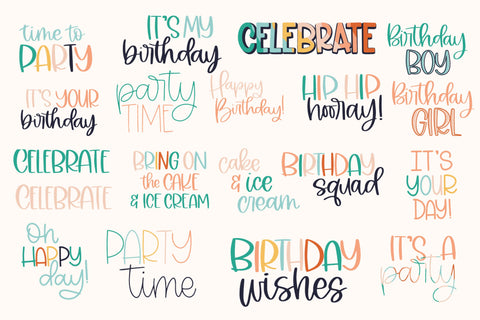 time to
PARTY
IT'S MY
birthday
CELEBRATE
Birthday
BOY
IT'S YOUR
birthday
party
TIME
Happy
Birthday!
HIP HIP
hooray!
Birthday
GIRL
CELEBRATE
CELEBRATE
BRING ON
the CAKE
& ICE CREAM
cake
& ice
cream
BIRTHDAY
squad
IT'S
YOUR
DAY!
oh
HAPPY
day!
PARTY
time
BIRTHDAY
wishes
IT'S A
party